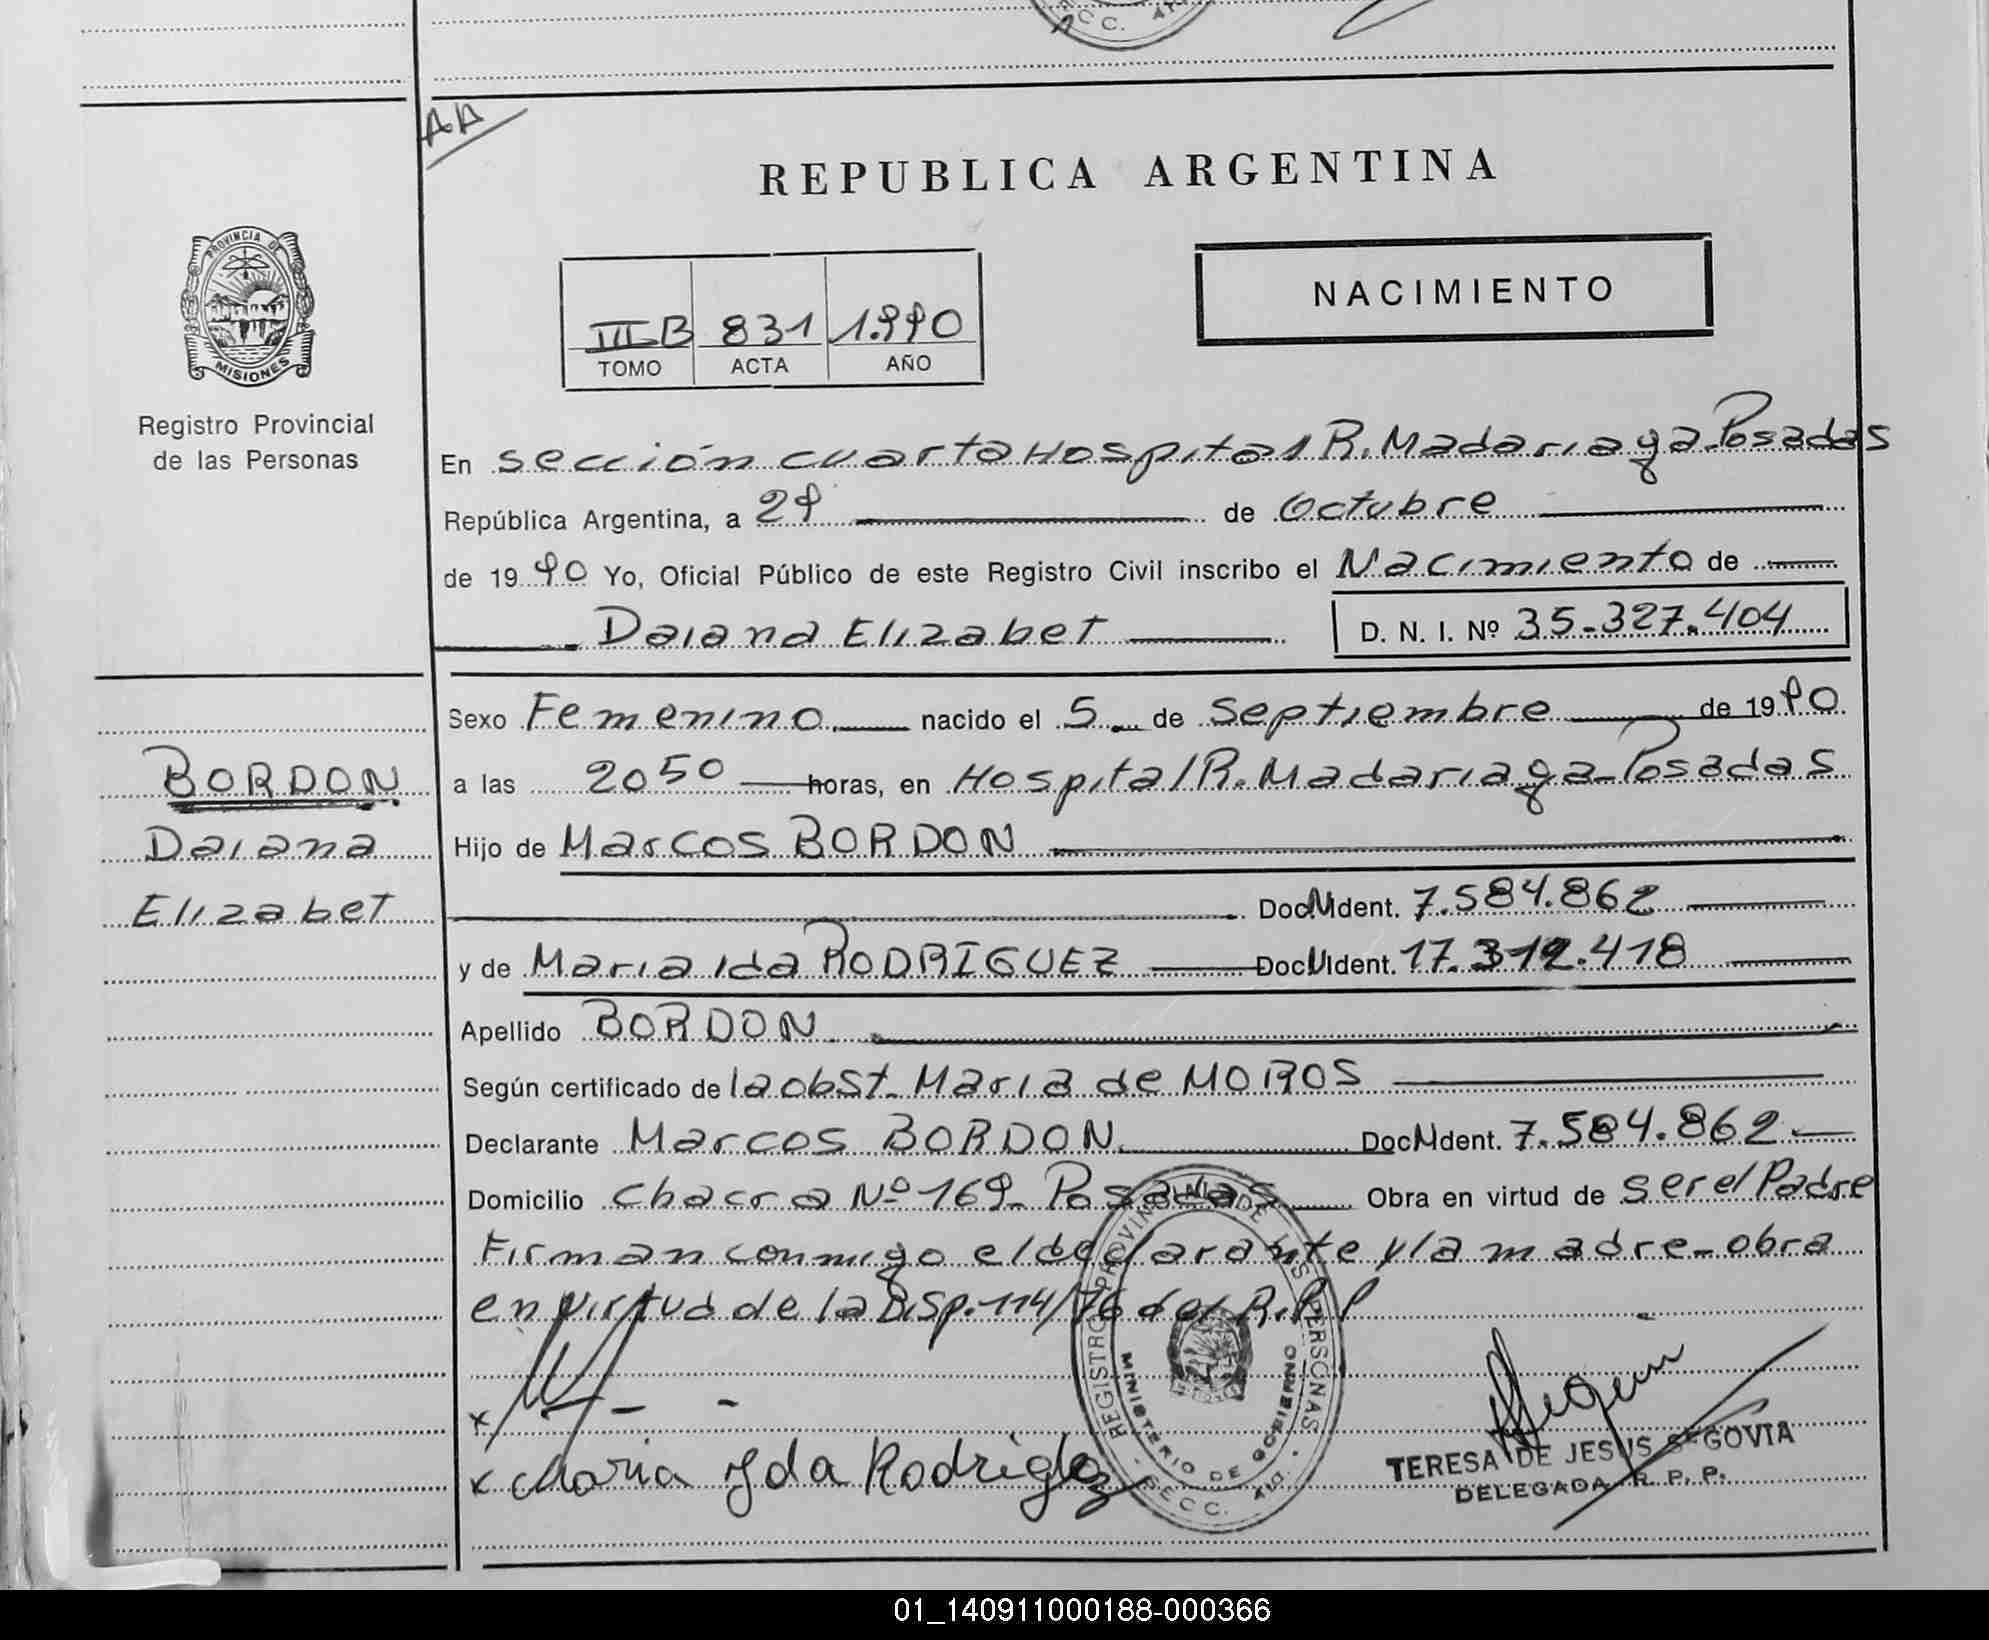 AA
REPUBLICA ARGENTINA
PROVINCIA DE
MISIONES
III-B 831 1.990
TOMO ACTA AÑO
NACIMIENTO
Registro Provincial
de las Personas
En sección cuarta Hospital R. Madariaga-Posadas
República Argentina, a 29 de Octubre
de 19 90 Yo, Oficial Público de este Registro Civil inscribo el Nacimiento de
Daiana Elizabet D. N. I. Nº 35.327.404
Sexo Femenino nacido el 5 de Septiembre de 19 90
a las 20 50 horas, en Hospital R. Madariaga-Posadas
Hijo de Marcos BORDON
Doc M Ident. 7.584.862
y de Maria Ida RODRIGUEZ Doc U Ident. 17.312.418
Apellido BORDON
Según certificado de la obst. Maria de MOROS
Declarante Marcos BORDON Doc M Ident. 7.584.862
Domicilio chacra Nº 169- Posadas Obra en virtud de ser el Padre
Firman conmigo el declarante y la madre-obra
en virtud de la Disp. 114/76 del R.P.P
BORDON
Daiana
Elizabet
x
x Maria Yda Rodriguez
REGISTRO PROVINCIAL DE LAS PERSONAS
MINISTERIO DE GOBIERNO
SECC. 4ta.
TERESA DE JESUS SEGOVIA
DELEGADA R. P. P.
01_140911000188-000366